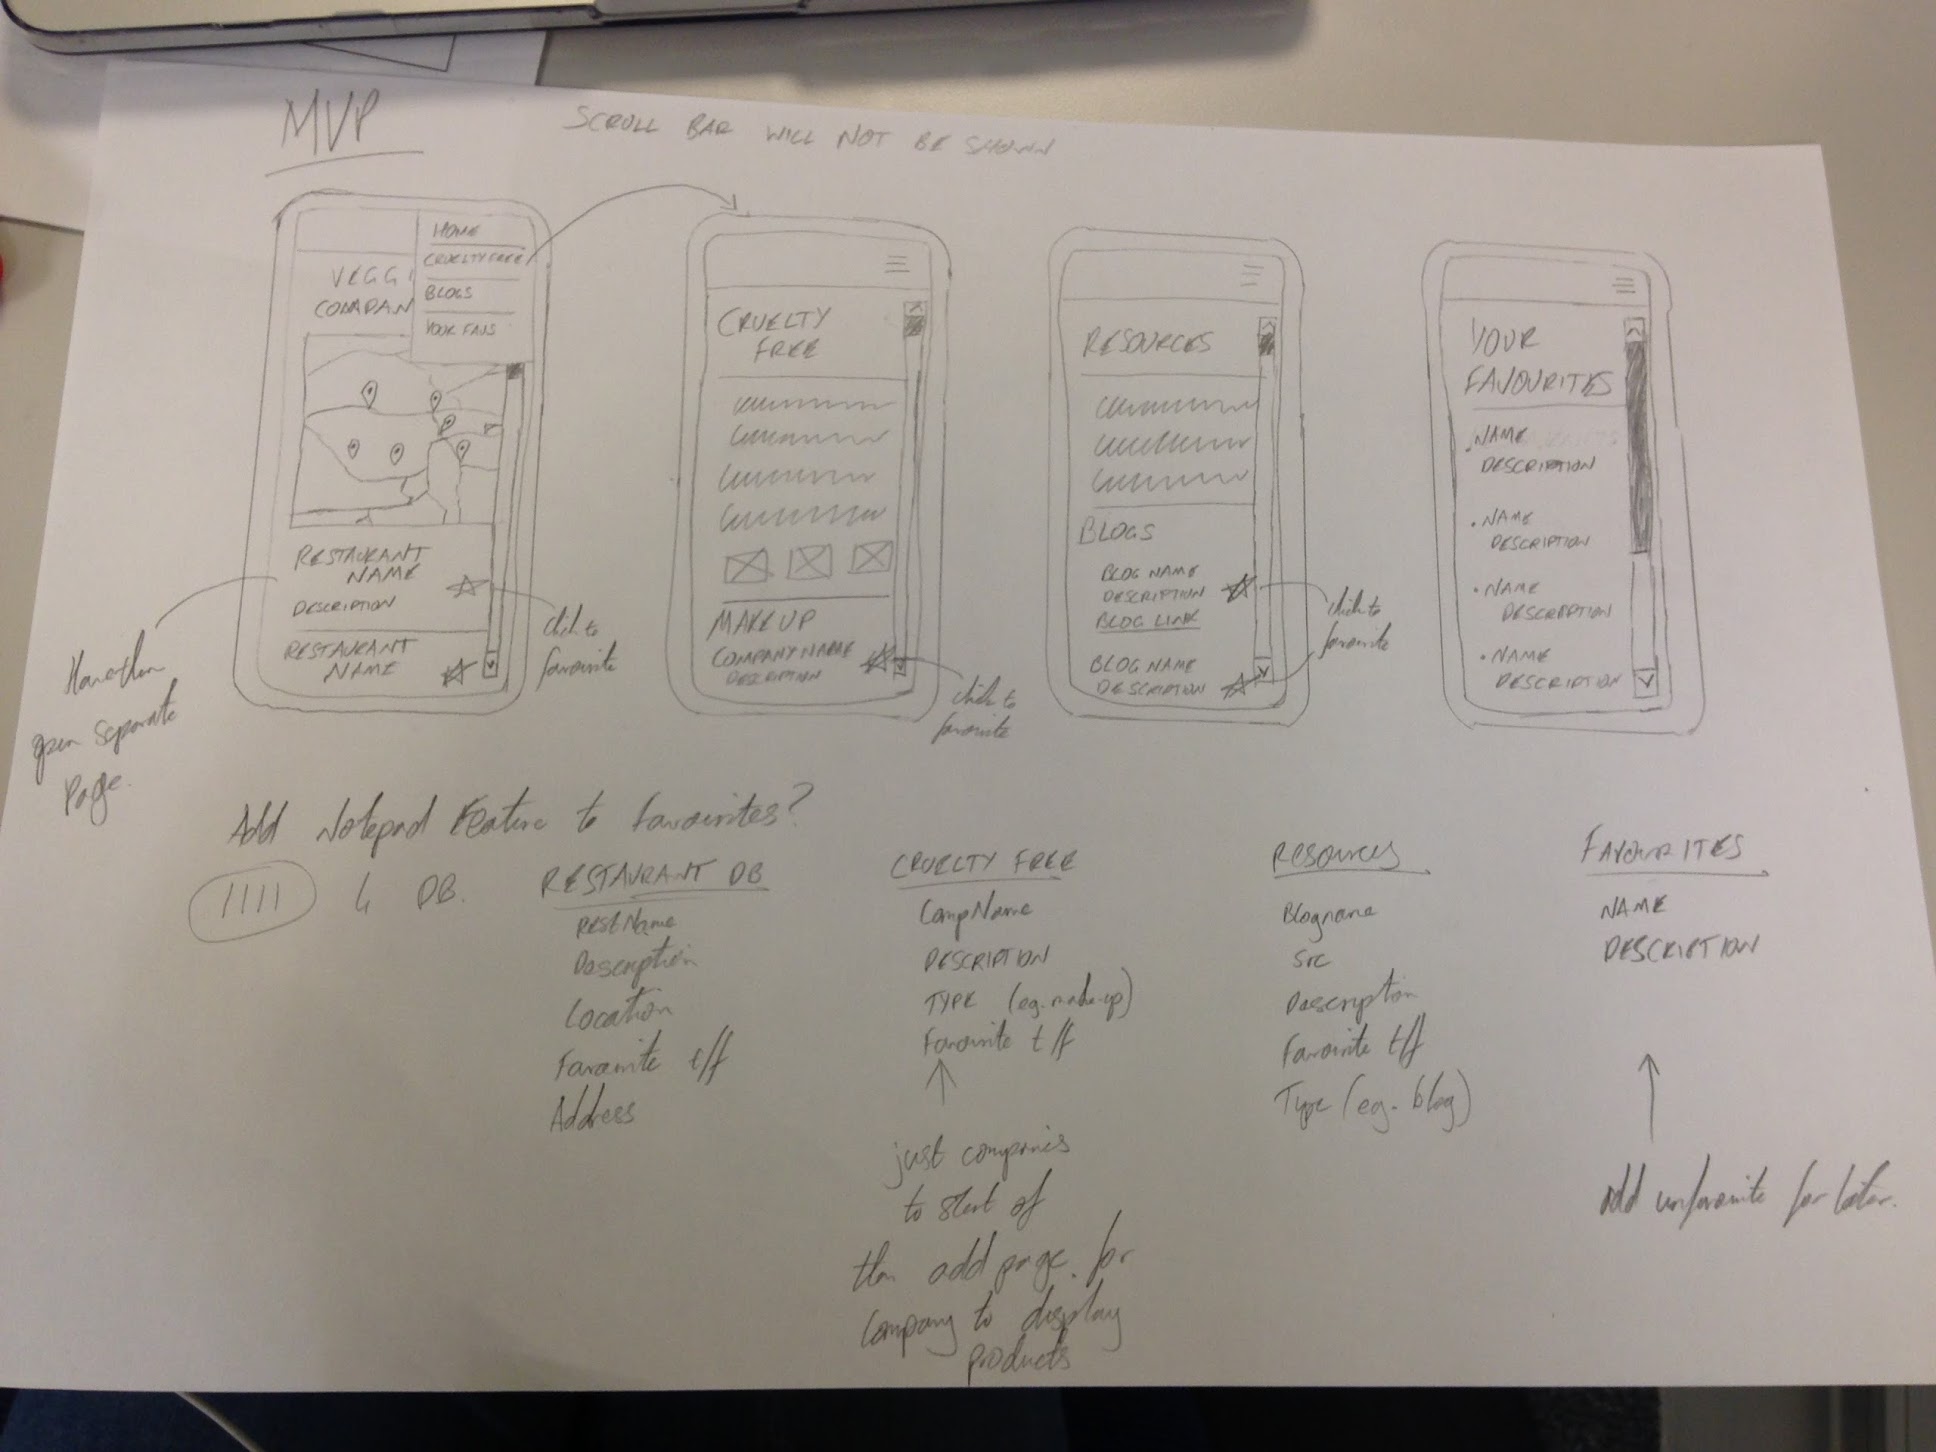 MVP
SCROLL BAR WILL NOT BE SHOWN
HOME
CRUELTY FREE
BLOGS
YOUR FAVS
VEGGI
COMPAN
RESTAURANT
NAME
DESCRIPTION
RESTAURANT
NAME
click to
favourite
open separate
page.
CRUELTY
FREE
MAKEUP
COMPANY NAME
DESCRIPTION
click to
favourite
RESOURCES
BLOGS
BLOG NAME
DESCRIPTION
BLOG LINK
BLOG NAME
DESCRIPTION
click to
favourite
YOUR
FAVOURITES
. NAME
DESCRIPTION
. NAME
DESCRIPTION
. NAME
DESCRIPTION
. NAME
DESCRIPTION
Add Notepad Feature to favourites?
4 DB.
RESTAURANT DB
RestName
Description
Location
Favourite t/f
Address
CRUELTY FREE
CompName
DESCRIPTION
TYPE (eg. make-up)
Favourite t/f
just companies
to start of
then add page for
company to display
products
Resources
Blogname
Src
Description
Favourite t/f
Type (eg. blog)
FAVOURITES
NAME
DESCRIPTION
add unfavourite for later.